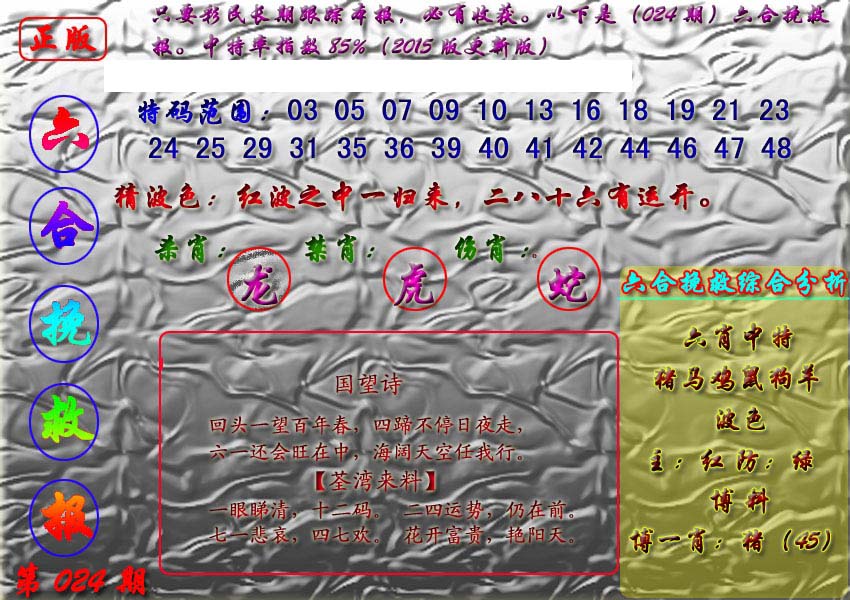 正版
只要彩民长期跟踪本报，必有收获。以下是（024期）六合挽救
报。中特率指数85%（2015版更新版）
六合挽救报
第024期
特码范围：03 05 07 09 10 13 16 18 19 21 23
24 25 29 31 35 36 39 40 41 42 44 46 47 48
猜波色：红波之中一归来，二八十六有运开。
杀肖：龙 禁肖：虎 伤肖：蛇
国望诗
回头一望百年春，四蹄不停日夜走，
六一还会旺在中，海阔天空任我行。
【荃湾来料】
一眼睇清，十二码。 二四运势，仍在前。
七一悲哀，四七欢。 花开富贵，艳阳天。
六合挽救综合分析
六肖中特
猪马鸡鼠狗羊
波色
主：红防：绿
博料
博一肖：猪（45）